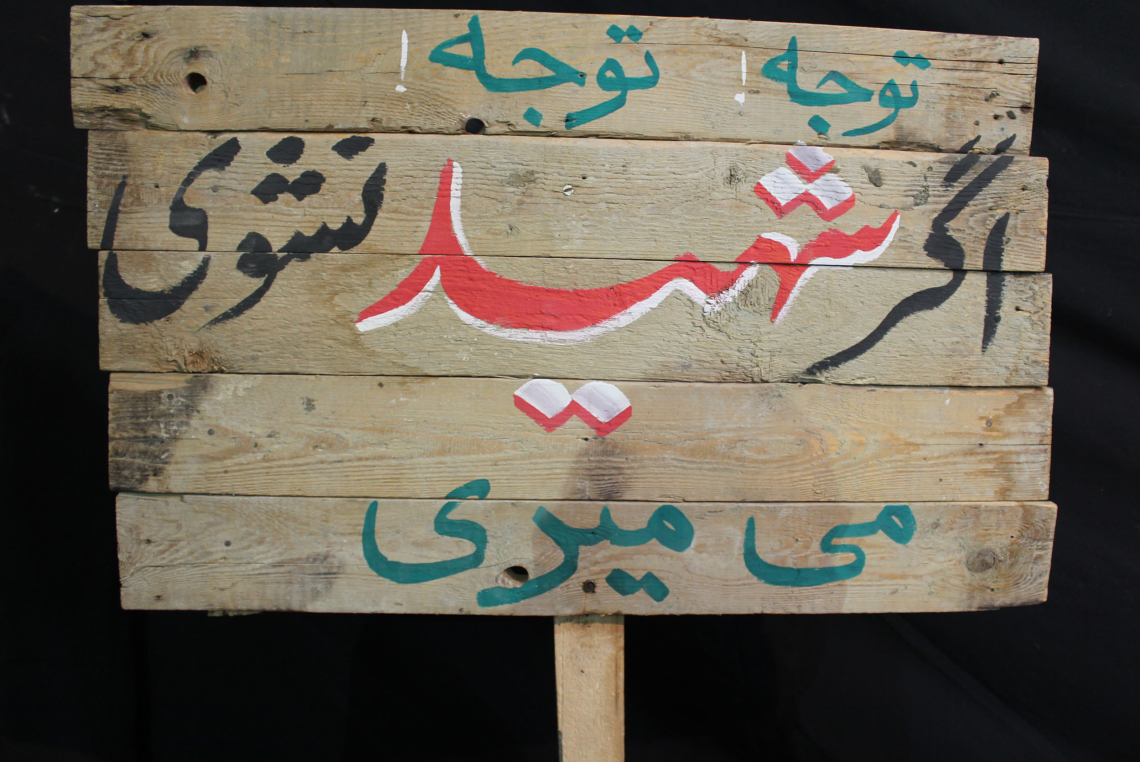 توجه ! توجه !
اگر شهید نشوی
می میری